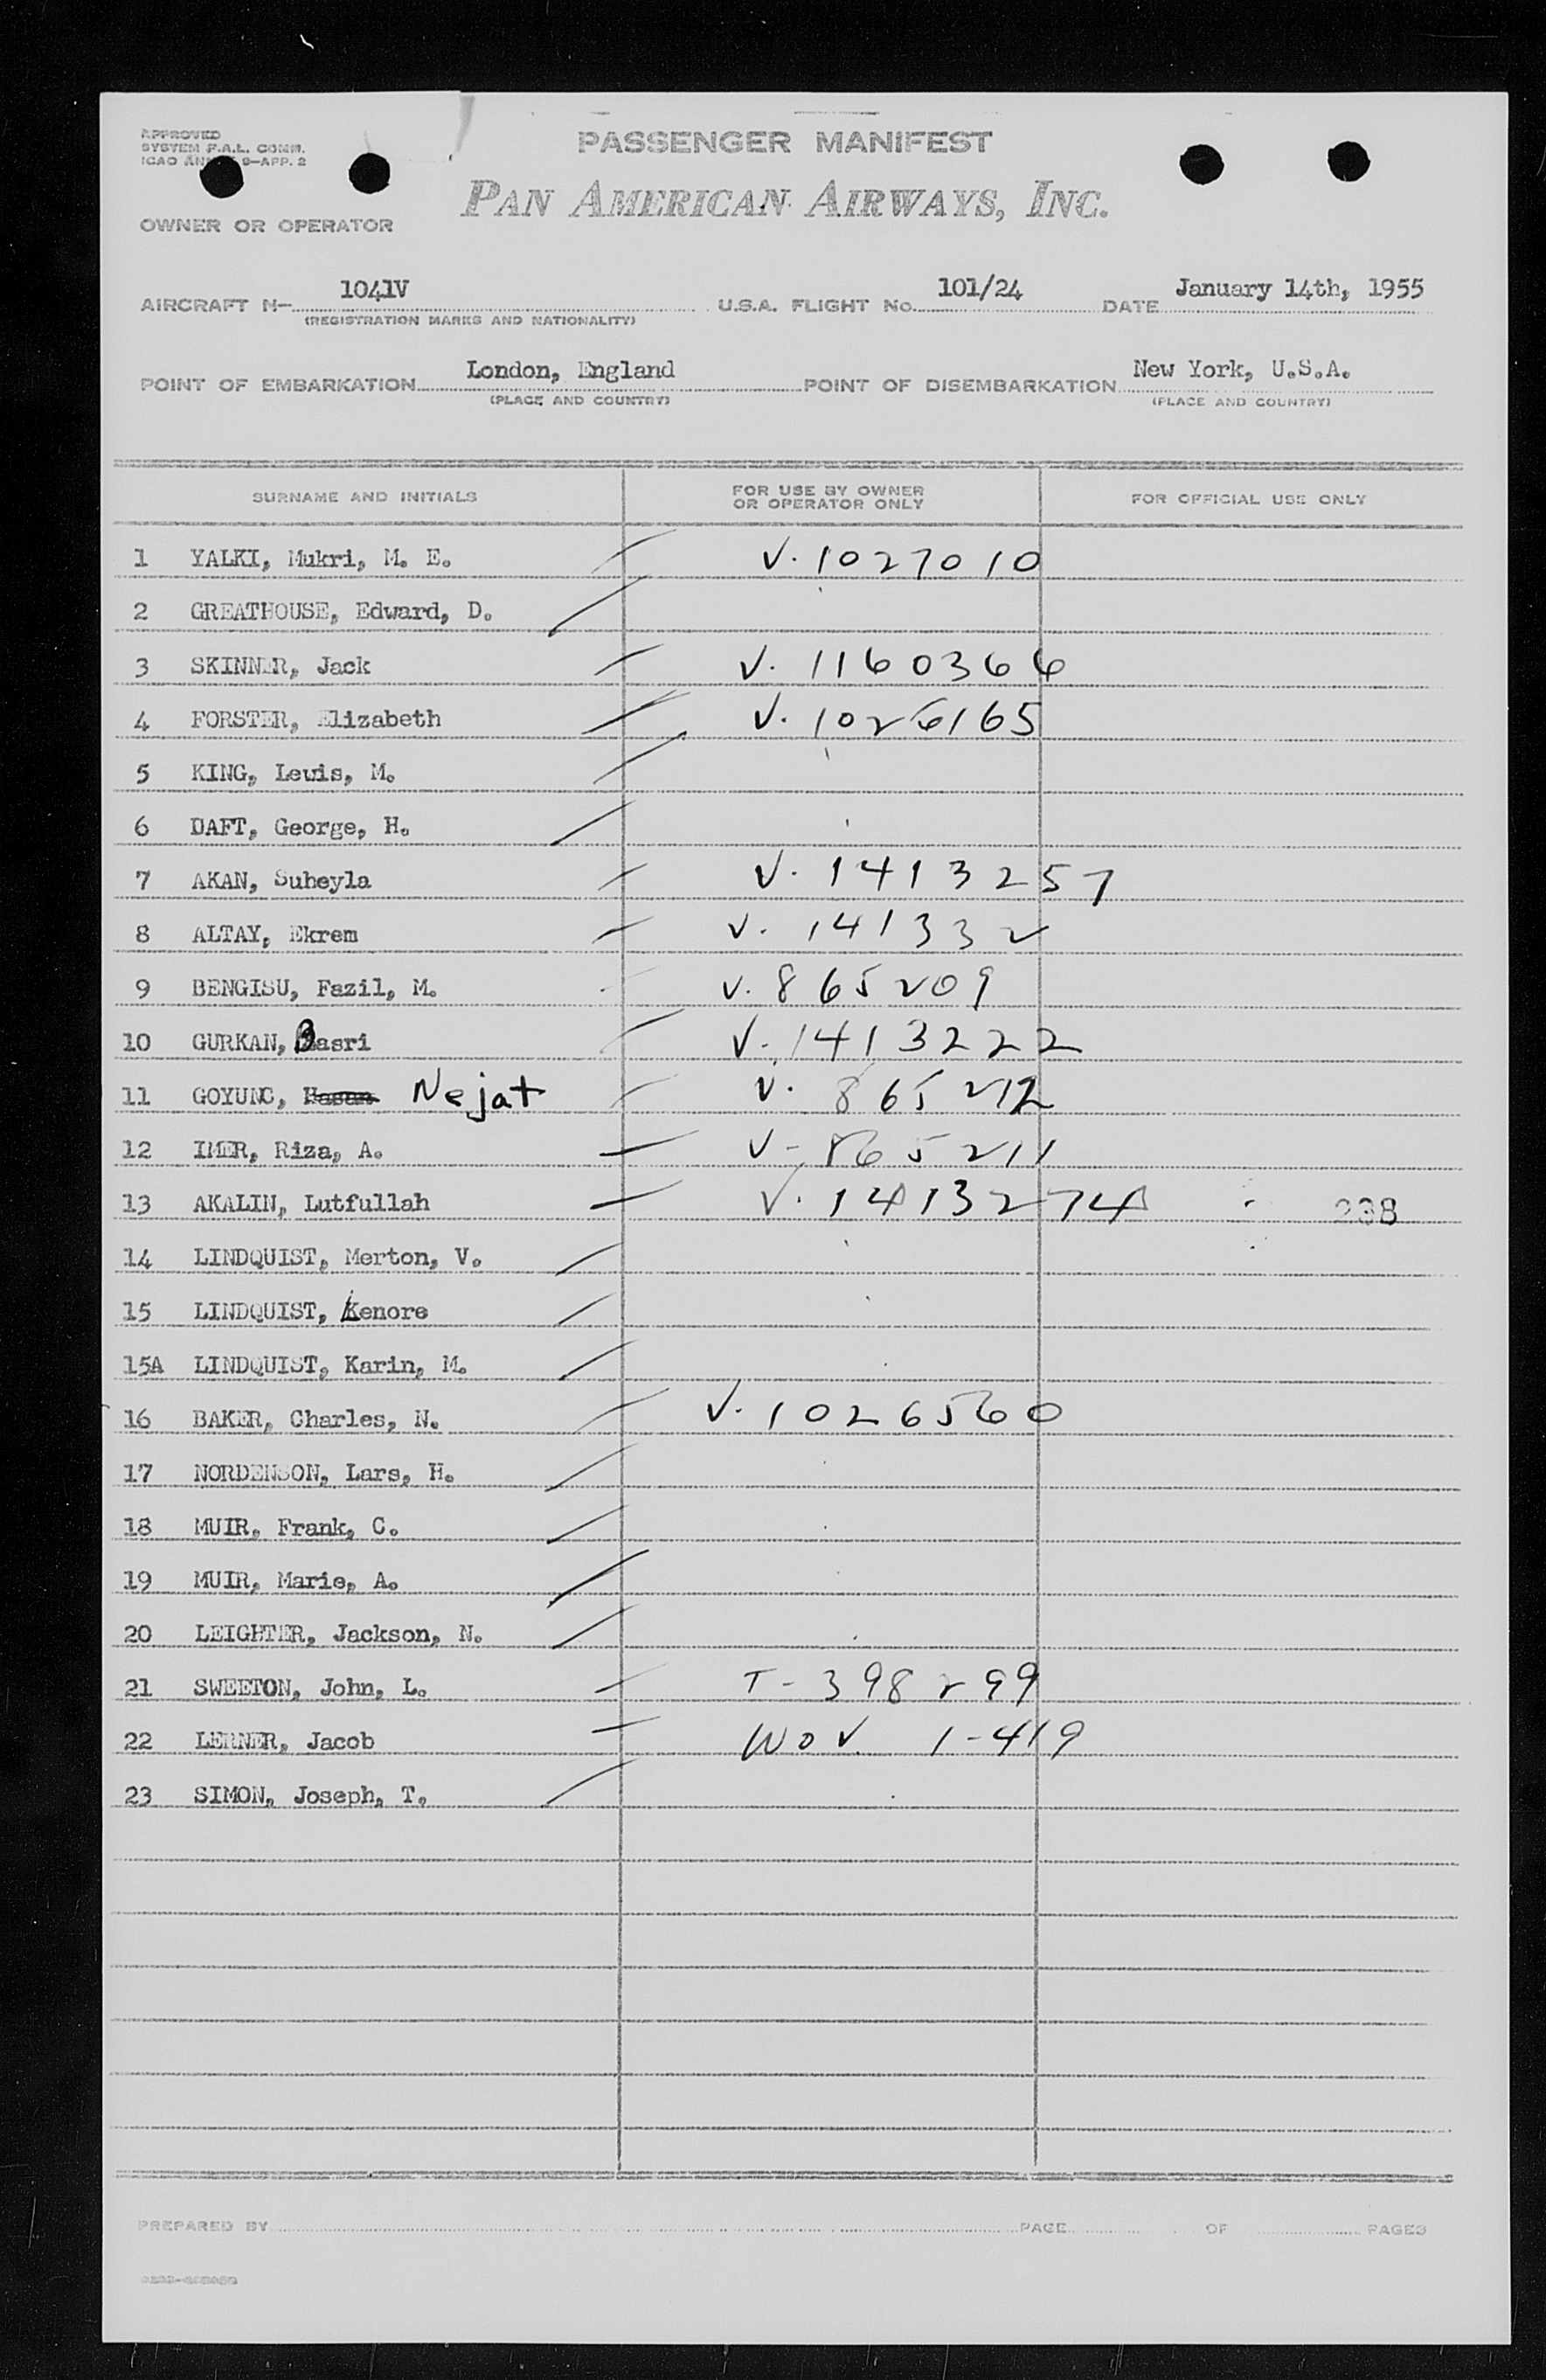 APPROVED
SYSTEM F.A.L. COMM.
ICAO ANNEX 9-APP. 2
PASSENGER MANIFEST
PAN AMERICAN AIRWAYS, INC.
OWNER OR OPERATOR
AIRCRAFT N- 1041V U.S.A. FLIGHT No. 101/24 DATE January 14th, 1955
(REGISTRATION MARKS AND NATIONALITY)
POINT OF EMBARKATION London, England POINT OF DISEMBARKATION New York, U.S.A.
(PLACE AND COUNTRY) (PLACE AND COUNTRY)
SURNAME AND INITIALS FOR USE BY OWNER OR OPERATOR ONLY FOR OFFICIAL USE ONLY
1 YALKI, Mukri, M. E. V. 1027010
2 GREATHOUSE, Edward, D.
3 SKINNER, Jack V. 1160366
4 FORSTER, Elizabeth V. 1026165
5 KING, Lewis, M.
6 DAFT, George, H.
7 AKAN, Suheyla V. 1413257
8 ALTAY, Ekrem V. 141332
9 BENGISU, Fazil, M. V. 865209
10 GURKAN, Basri V. 1413222
11 GOYUNC, Hasan Nejat V. 865212
12 IMER, Riza, A. V- 865211
13 AKALIN, Lutfullah V. 1413274 238
14 LINDQUIST, Merton, V.
15 LINDQUIST, Lenore
15A LINDQUIST, Karin, M.
16 BAKER, Charles, N. V. 1026560
17 NORDENSON, Lars, H.
18 MUIR, Frank, C.
19 MUIR, Marie, A.
20 LEIGHTER, Jackson, N.
21 SWEETON, John, L. T- 398299
22 LERNER, Jacob WOV 1-419
23 SIMON, Joseph, T.
PREPARED BY PAGE OF PAGES